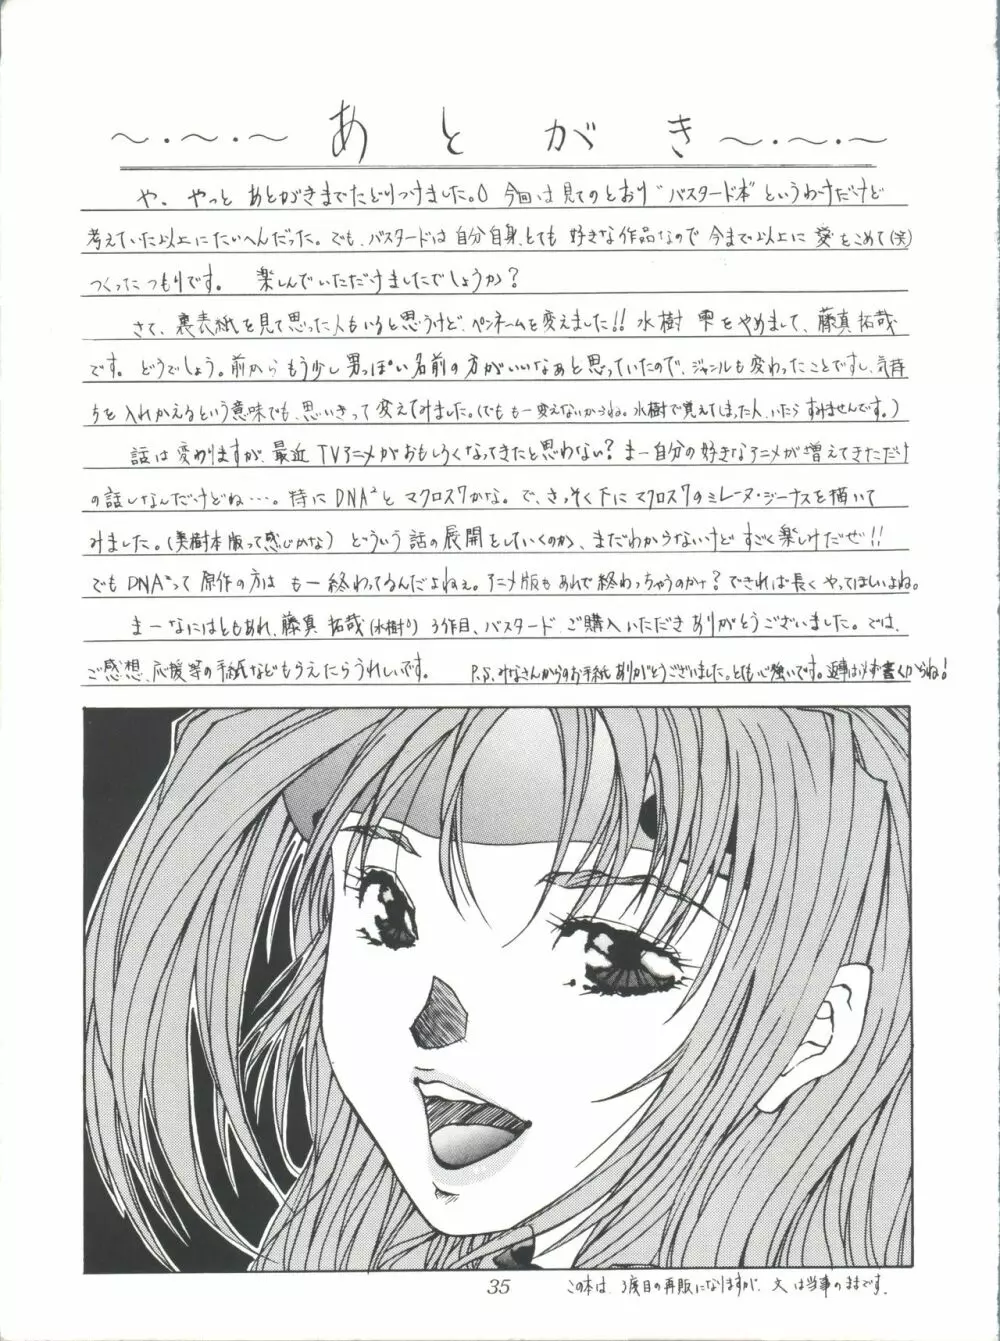 ～・～・～ あとがき ～・～・～
や、やっと あとがきまでたどりつけました。 今回は見てのとおり "バスタード本" というわけだけど
考えていた以上にたいへんだった。でも、バスタードは自分自身、とても 好きな作品なので 今まで以上に 愛をこめて(笑)
つくったつもりです。 楽しんでいただけましたでしょうか？
さて、裏表紙を見て思った人もいると思うけど、ペンネームを変えました!! 水樹 雫をやめまして、藤真拓哉
です。どうでしょう。前から もう少し男っぽい名前の方がいいなあと思っていたので、ジャンルも変わったことですし、気持
ちを入れかえるという意味でも、思いきって変えてみました。(でも もー変えないからね。水樹で覚えてしまった人、いたら すみませんです。)
話は変わりますが、最近 TVアニメがおもしろくなってきたと思わない？ まー自分の好きなアニメが増えてきただけ
の話しなんだけどね…。特にDNA²とマクロス7かな。で、さっそく下にマクロス7のミレーヌ・ジーナスを描いて
みました。(美樹本版って感じかな) どういう話の展開をしていくのか、まだわからないけど すごく楽しみだぜ!!
でもDNA²って 原作の方は もー終わってるんだよねぇ。アニメ版もあれで終わっちゃうのかナ？できれば長くやってほしいよね。
まーなにはともあれ、藤真 拓哉(水樹) 3作目、バスタード ご購入いただき ありがとうございました。では、
ご感想、応援等の手紙などもらえたらうれしいです。 P.S.みなさんからのお手紙ありがとうございました。とても心強いです。返事は必ず書くからね！
35
この本は、3度目の再販になりますが、文は当事のままです。